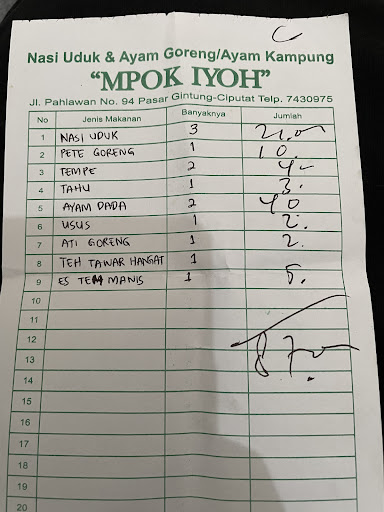 Nasi Uduk & Ayam Goreng/Ayam Kampung
"MPOK IYOH"
Jl. Pahlawan No. 94 Pasar Gintung-Ciputat Telp. 7430975
No Jenis Makanan Banyaknya Jumlah
1 NASI UDUK 3 21.0
2 PETE GORENG 1 10.
3 TEMPE 2 4-
4 TAHU 1 3.
5 AYAM DADA 2 40
6 USUS 1 2.
7 ATI GORENG 1 2.
8 TEH TAWAR HANGAT 1
9 ES TEH MANIS 1 5.
10
11
12
13
14
15
16
17
18
19
20